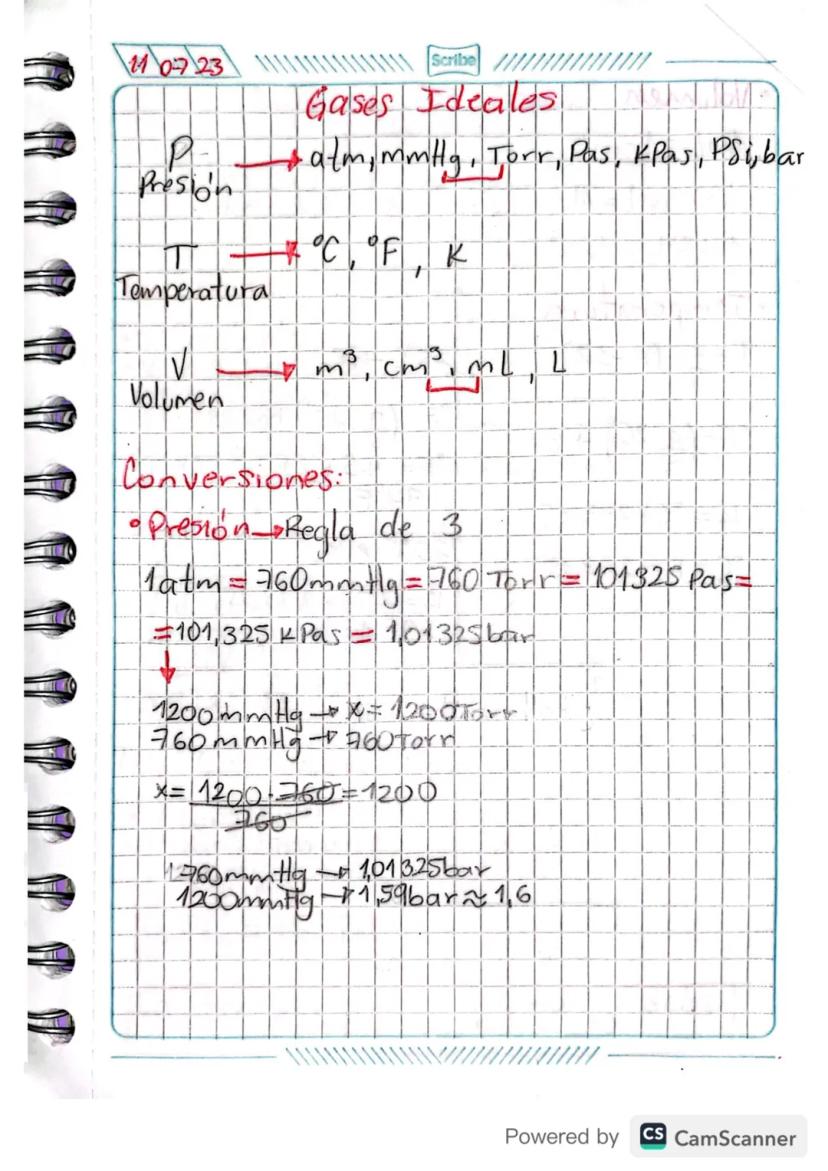 11 07 23
Scribe
Gases Ideales
P → atm, mmHg, Torr, Pas, KPas, PSi, bar
Presión
T → °C, °F, K
Temperatura
V → m³, cm³, mL, L
Volumen
Conversiones:
• Presión → Regla de 3
1atm = 760mmHg = 760 Torr = 101325 Pas =
= 101,325 KPas = 1,01325bar
↓
1200mmHg → x = 1200Torr
760mmHg → 760Torr
x = 1200 · 760 = 1200
760
760mmHg → 1,01325bar
1200mmHg → 1,59bar ≈ 1,6
Powered by CS CamScanner